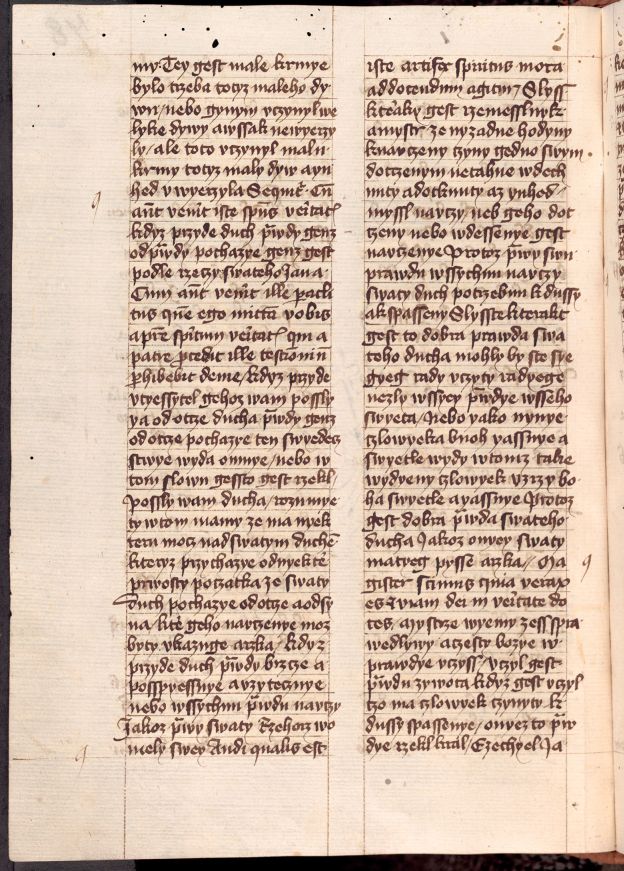 my. Tey gest male krmye
bylo trzeba totyz maleho dy
wu / nebo gynym vczynyl we
lyke dywy awssak newyerzy
ly / ale toto vczynyl malu
krmy totyz maly dyw a yn
hed vwyerzyla Sequit̄ Cū
aūt veīt iste spūs veītat̄
kdyz przyde duch p̄wdy genz
od p̄wdy pochazye genz gest
podle rzeczy swateho Jana
Cum aūt venīt ille pacli
tus quē ego mittā vobis
a pr̄e spiritum veītat̄ qui a
patre p̄cedit ille testioniū
phibebit de me / kdyz przyde
vtyessytel gehoz wam possly
ya od otze ducha p̄wdy genz
od otze pochazye ten swyedecz
stwye wyda o mnye / nebo w
tom slowu gessto gest rzekl
possly wam ducha / rozumye
ty w tom mamy ze ma nyek
teru mocz nad swatym duchē
kteryz przychazye od nyekte
prwosty poczatka ze swaty
duch pochazye od otze a od sy
na / kte geho naveczenye moz
byty vkazuge arzka / kdyz
przyde duch p̄wdy brzcze a
posspyessnye a vzytecznye
nebo wssychnu p̄wdu nauczy
Jakoz p̄wy swaty Rzehorz w o
mely swey Audi qualis est
iste artifex spiritus mora
ad docendum agitur / Slyss
kteraky gest rzemesslnyk
a mystr ze nyzadne hodyny
k nauczeny czyny gedno swym
dotczenym netahne w dech
nuty a dotknuty az ynhed
myssl nauczy / neb geho dot
czeny nebo wdessenye gest
nauczenye Protoz p̄wy swu
prawdu wssychnu nauczy
swaty duch potrzebnu k dussy
ak spasseny Slysste kterakt
gest to dobra prawda swa
teho ducha mohly by ste sye
gyey rady vczyty radyege
nezly wssycy p̄wdye wsseho
swyeta / Nebo yako nynye
czlowyeka buoh yassnye a
swyetle wydy w tomz take
wydyeny czlowyek vzrzy bo
ha swyetle a yassnye Protoz
gest dobra p̄wda swateho
ducha Jakoz o nyey swaty
matyey pysse arzka / Ma
gister scimus quia verax
es & viam dei in veītate do
ces / mystrze wyemy zess spra
wedlywy a czesty bozye w
prawdye vczyss / vczyl gest
p̄wdu zywota kdyz gest vczyl
czo ma czlowyek czynyty k
dussy spassenye / o nyez to p̄w
dye rzekl kral / Ezechyel Ja